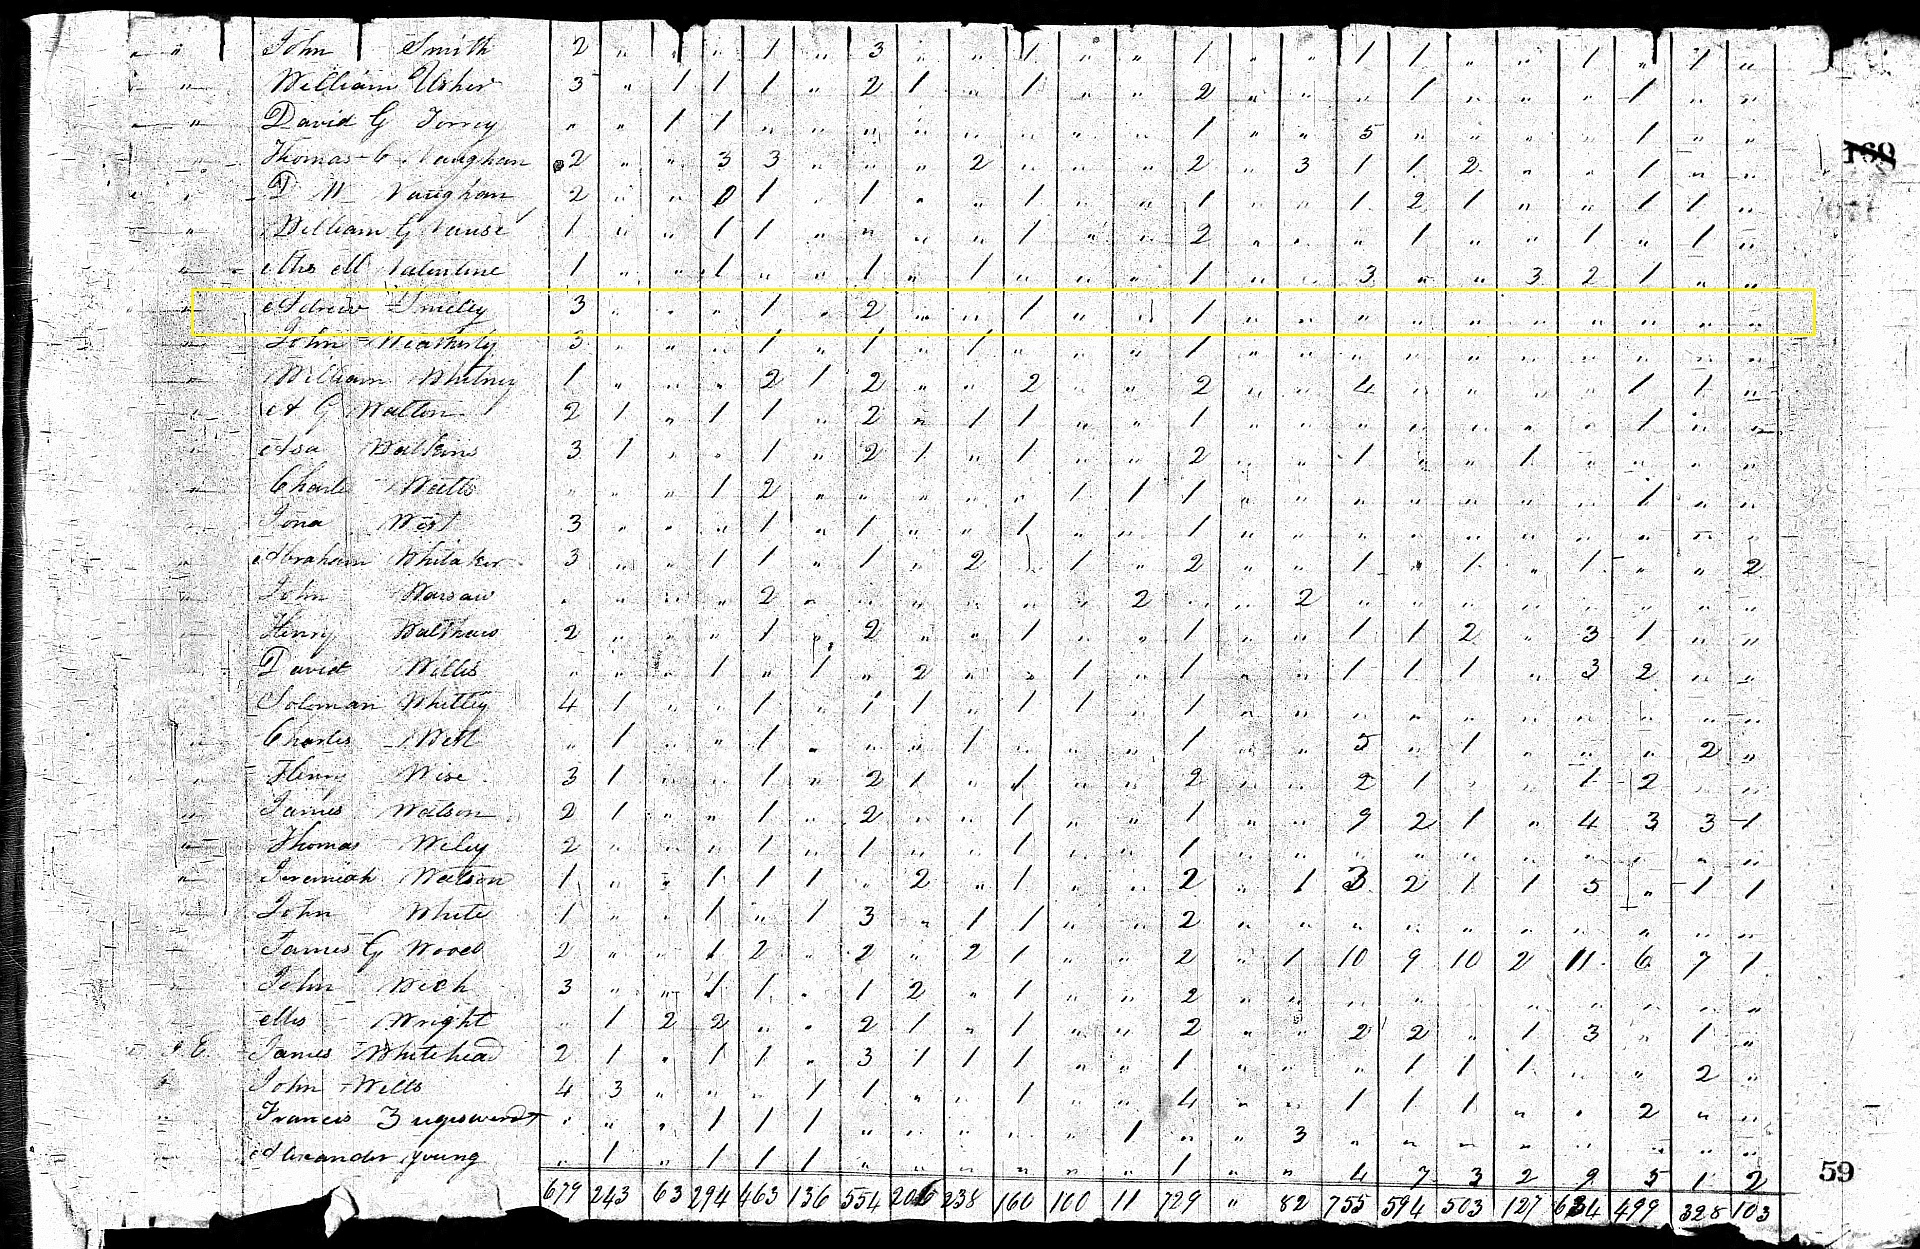 " " John Smith 2 " " " 1 " 3 " " 1 " " 1 " " 1 1 " " 1 " 1 "
" William Usher 3 " 1 1 1 " 2 1 " 1 " " 2 " " " 1 " " " 1 " "
" " David G Torrey " " 1 1 " " " " " " " " 1 " " 5 " " " " 1 " "
" Thomas C Vaughan 2 " " 3 3 " " " 2 " " " 2 " 3 1 1 2 " " 1 " "
" " D W Vaughan 2 " " 0 1 " 1 " " 1 " " 1 " " 1 2 1 " " 1 1 "
" William G Vause 1 " " 1 1 " " " " 1 " " 2 " " " 1 " " 1 " 1 "
" Valentine 1 " " 1 " " 1 " 1 " " " 1 " " 3 " " 3 2 1 " "
" Adrew Smiley 3 " " " 1 " 2 " " 1 " " 1 " " " " " " " " " "
" John Weatherly 3 " " " 1 " 1 " 1 " " " 1 " " " " " " " " " "
" William Whitney 1 " " " 2 1 2 " " 2 " " 2 " " 4 " " " " 1 1 "
" A G Walton 2 1 " 1 1 " 2 " 1 1 " " 1 " " " " " " " 1 " "
" Asa Watkins 3 1 " " 1 " 2 1 " 1 " " 2 " " 1 " " 1 " " " "
" Charles Watts " " " 1 2 " " " " " 1 1 1 " " " " " " " 1 " "
" Iona West 3 " " " 1 " 1 " " 1 " " 1 " " " " " " " " " "
" Abraham Whitaker 3 " " 1 1 " 1 " 2 " 1 " 2 " " 1 " 1 " 1 " " 2
" John Warsaw " " " " 2 " " " " " " 2 " " 2 " " " " " " " "
" Henry Walthaw 2 " " " 1 " 2 " " 1 " " 1 " " 1 1 2 " 3 1 " "
" David Willis " " " 1 " 1 " 2 " " 1 " 1 " " 1 1 1 " 3 2 " "
Soloman Whitley 4 1 " " 1 " 1 1 " 1 1 " 1 " " " " " " " " " "
" Charles West " 1 " " 1 " " " 1 " " " 1 " " 5 " 1 " " " 2 "
" Henry Wise 3 1 " " 1 " 2 1 " 1 " " 2 " " 2 1 " " 1 2 " "
" James Watson 2 1 " " 1 " 2 " " 1 " " 1 " " 9 2 1 " 4 3 3 1
" Thomas Weley 2 " " " 1 " 1 " " 1 " " 1 " " " " " " " " " "
" Jeremiah Watson 1 " " 1 1 1 " 2 " 1 " " 2 " 1 3 2 1 1 5 " 1 1
" John White 1 " " 1 " 1 3 " 1 1 " " 2 " " " " " " " " " "
" James G Wood 2 " " 1 2 " 2 " 2 1 " " 2 " 1 10 9 10 2 11 6 7 1
" John Wech 3 " " 1 1 " 1 2 " 1 " " 2 " " " " " " " " " "
" Wright " 1 2 2 " " 2 1 " 1 " " 2 " " 2 2 " 1 3 " 1 "
E James Whitehead 2 1 " 1 1 " 3 1 1 1 " " 1 " " " 1 1 1 " " 2 "
John Wells 4 3 " " " 1 1 " " 1 " " 4 " " 1 1 1 " " 2 " "
" Francis " " " 1 1 1 " " " " " 1 " " 3 " " " " " " " "
" Alexander Young " 1 " 1 1 1 " " " " " " 1 " " 4 7 3 2 9 5 1 2
679 243 63 294 463 136 554 206 238 160 100 11 729 " 82 755 594 503 127 634 499 328 103
160
59